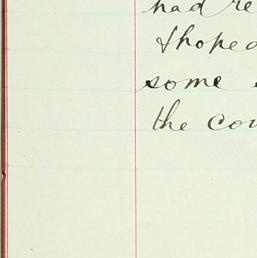 had re
I hoped
some
the cou